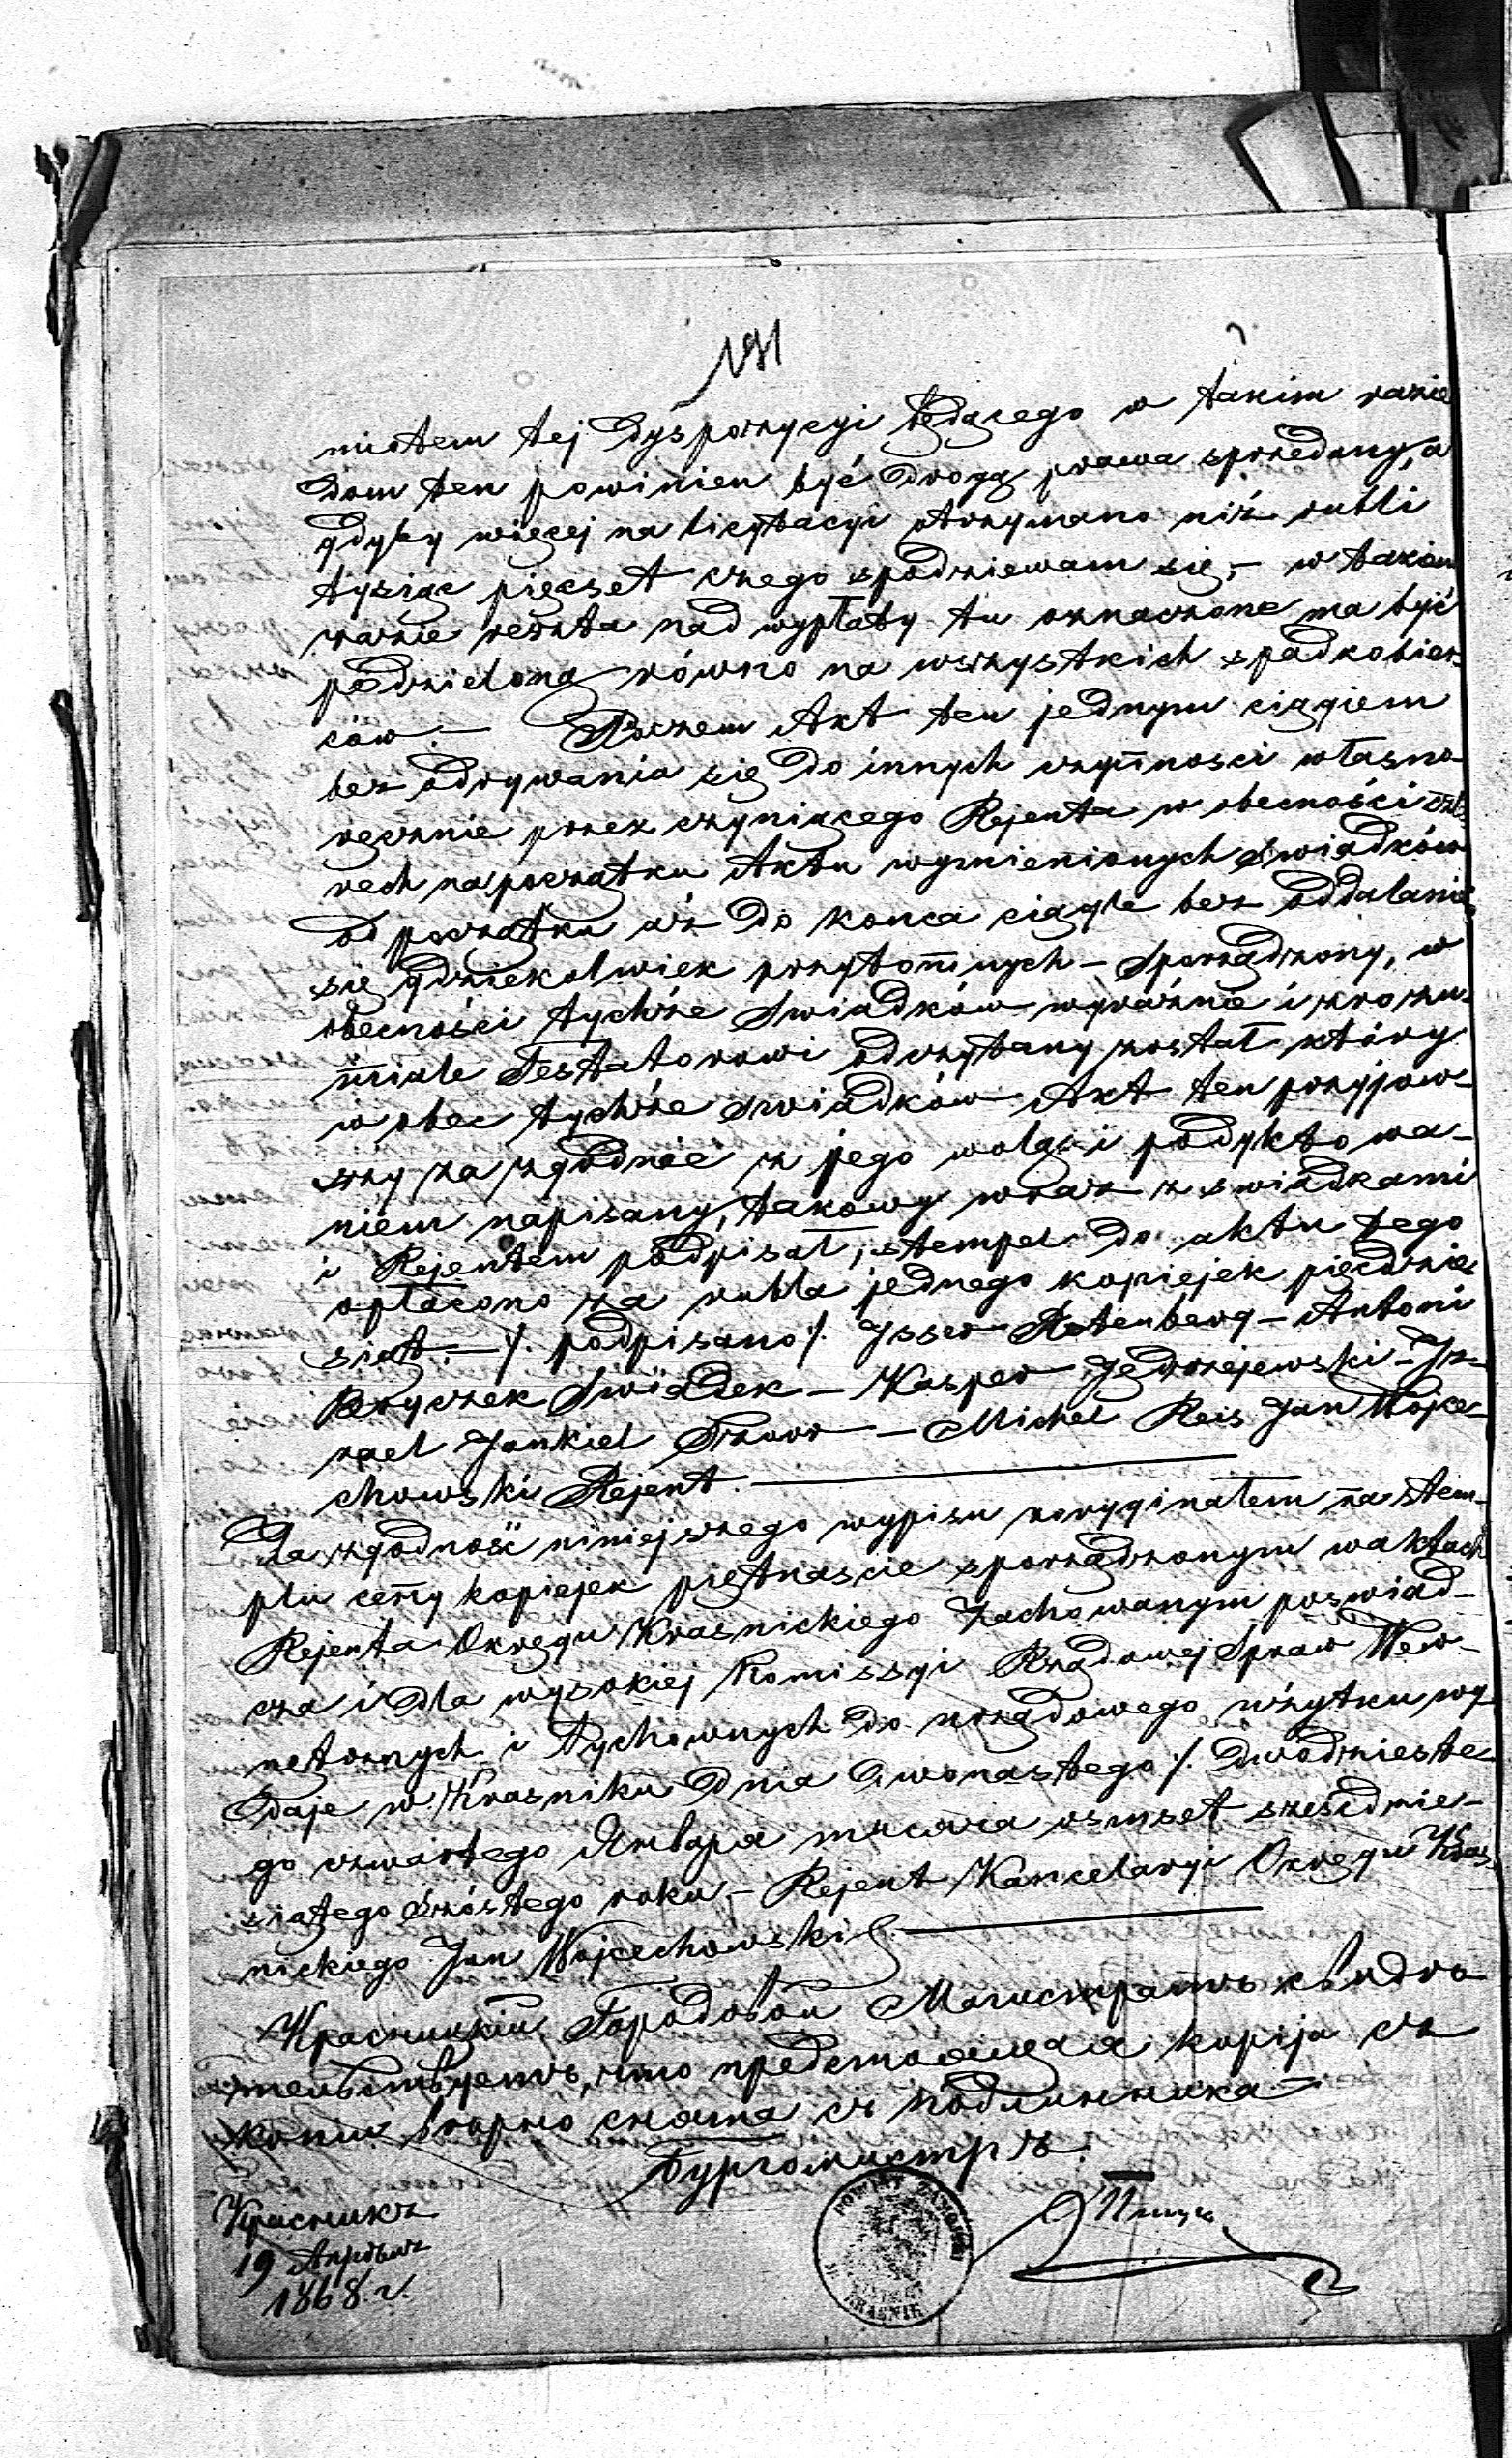 191
miotem tej dyspozycyi będącego w takim razie
dom ten powinien być drogą prawa sprzedany, a
gdyby więcej na licytacyi otrzymano niż rubli
tysiąc pięcset czego spodziewam się, – w takim
razie reszta nad wypłaty tu oznaczone ma być
podzieloną równo na wszystkich spadkobier-
ców. – Poczem Akt ten jednym ciągiem
bez odrywania się do innych czynności własno-
ręcznie przez czyniącego Rejenta w obecności czte-
rech na początku Aktu wymienionych Swiadków
od początku aż do konca ciągle bez oddalania
się gdziekolwiek przytomnych – Sporządzony, w
obecności tychże Swiadków wyraźnie i zrozu-
miale Testatorowi odczytany został który
w obec tychże Swiadków Akt ten przyjąw-
szy za zgodnie z jego wolą i podyktowa-
niem napisany, takowy wraz z swiadkami
i Rejentem podpisał, stempel do aktu tego
opłacono za rubla jednego kopiejek pięcdzie-
siąt. – /. podpisano /. Jsser Rotenberg – Antoni
Bryczek Swiadek – Kasper Jędrzejewski – Jz-
rael Jankiel – Michel Reis Jan Wojce-
chowski Rejent.
Za zgodność niniejszego wypisu z oryginałem na stem-
plu ceny kopiejek piętnascie sporządzonym w aktach
Rejenta Okręgu Krasnickiego zachowanym poswiad-
cza i dla wysokiej Komissyi Rządowej Spraw Wew-
nętrznych i Duchownych do urzędowego użytku wy-
daje w Krasniku dnia dwonastego /. dwódzieste-
go czwartego Января tysiąca osmset szesćdzie-
siątego szóstego roku – Rejent Kancelaryi Okręgu Kras-
nickiego Jan Wojcechowski
Красницкій Городовой Магистратъ свидѣ-
тельствуетъ, что предстоящая копija съ
копіи вѣрно снята съ подлинника
Бургомистръ
Красникъ
19 Апрѣля
1868. г.
POWIAT ZAMOJSKI
KRASNIK